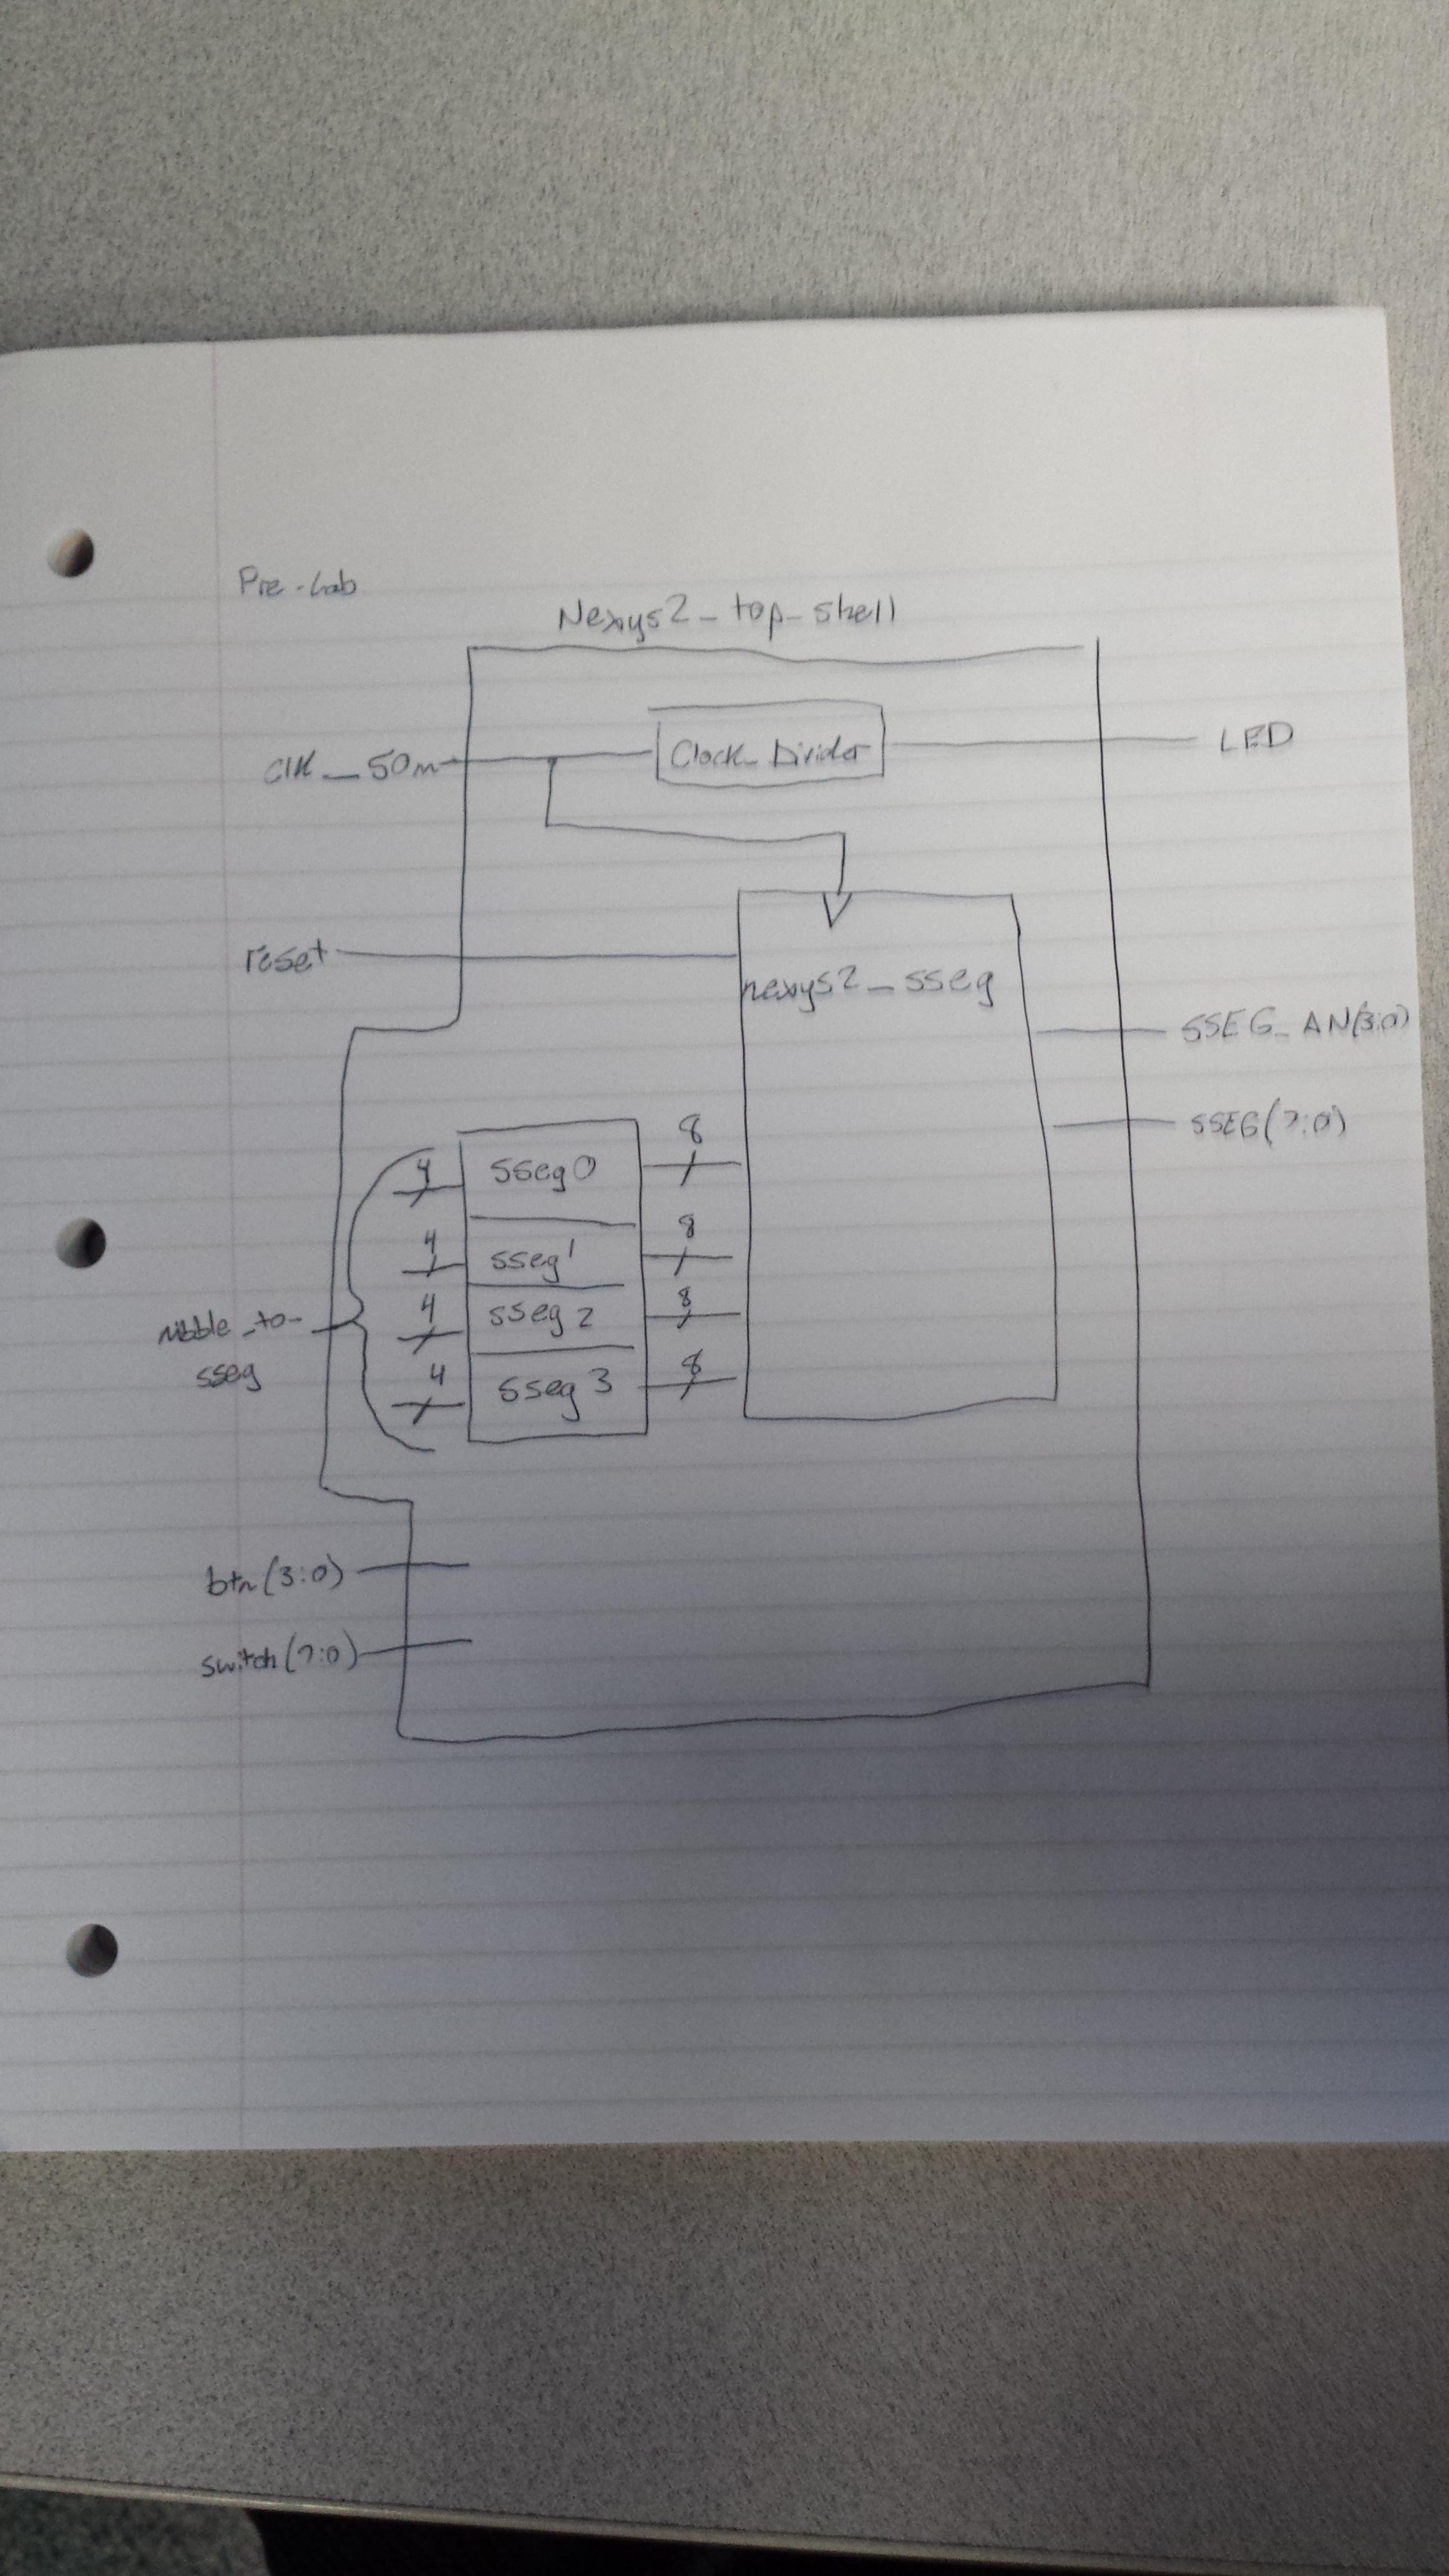 Pre-Lab
Nexys2_top_shell
Clk_50m
Clock_Divider
LED
reset
nexys2_sseg
SSEG_AN(3:0)
SSEG(7:0)
4
sseg0
8
4
sseg1
8
4
sseg2
8
4
sseg3
8
nibble_to_
sseg
btn(3:0)
switch(7:0)